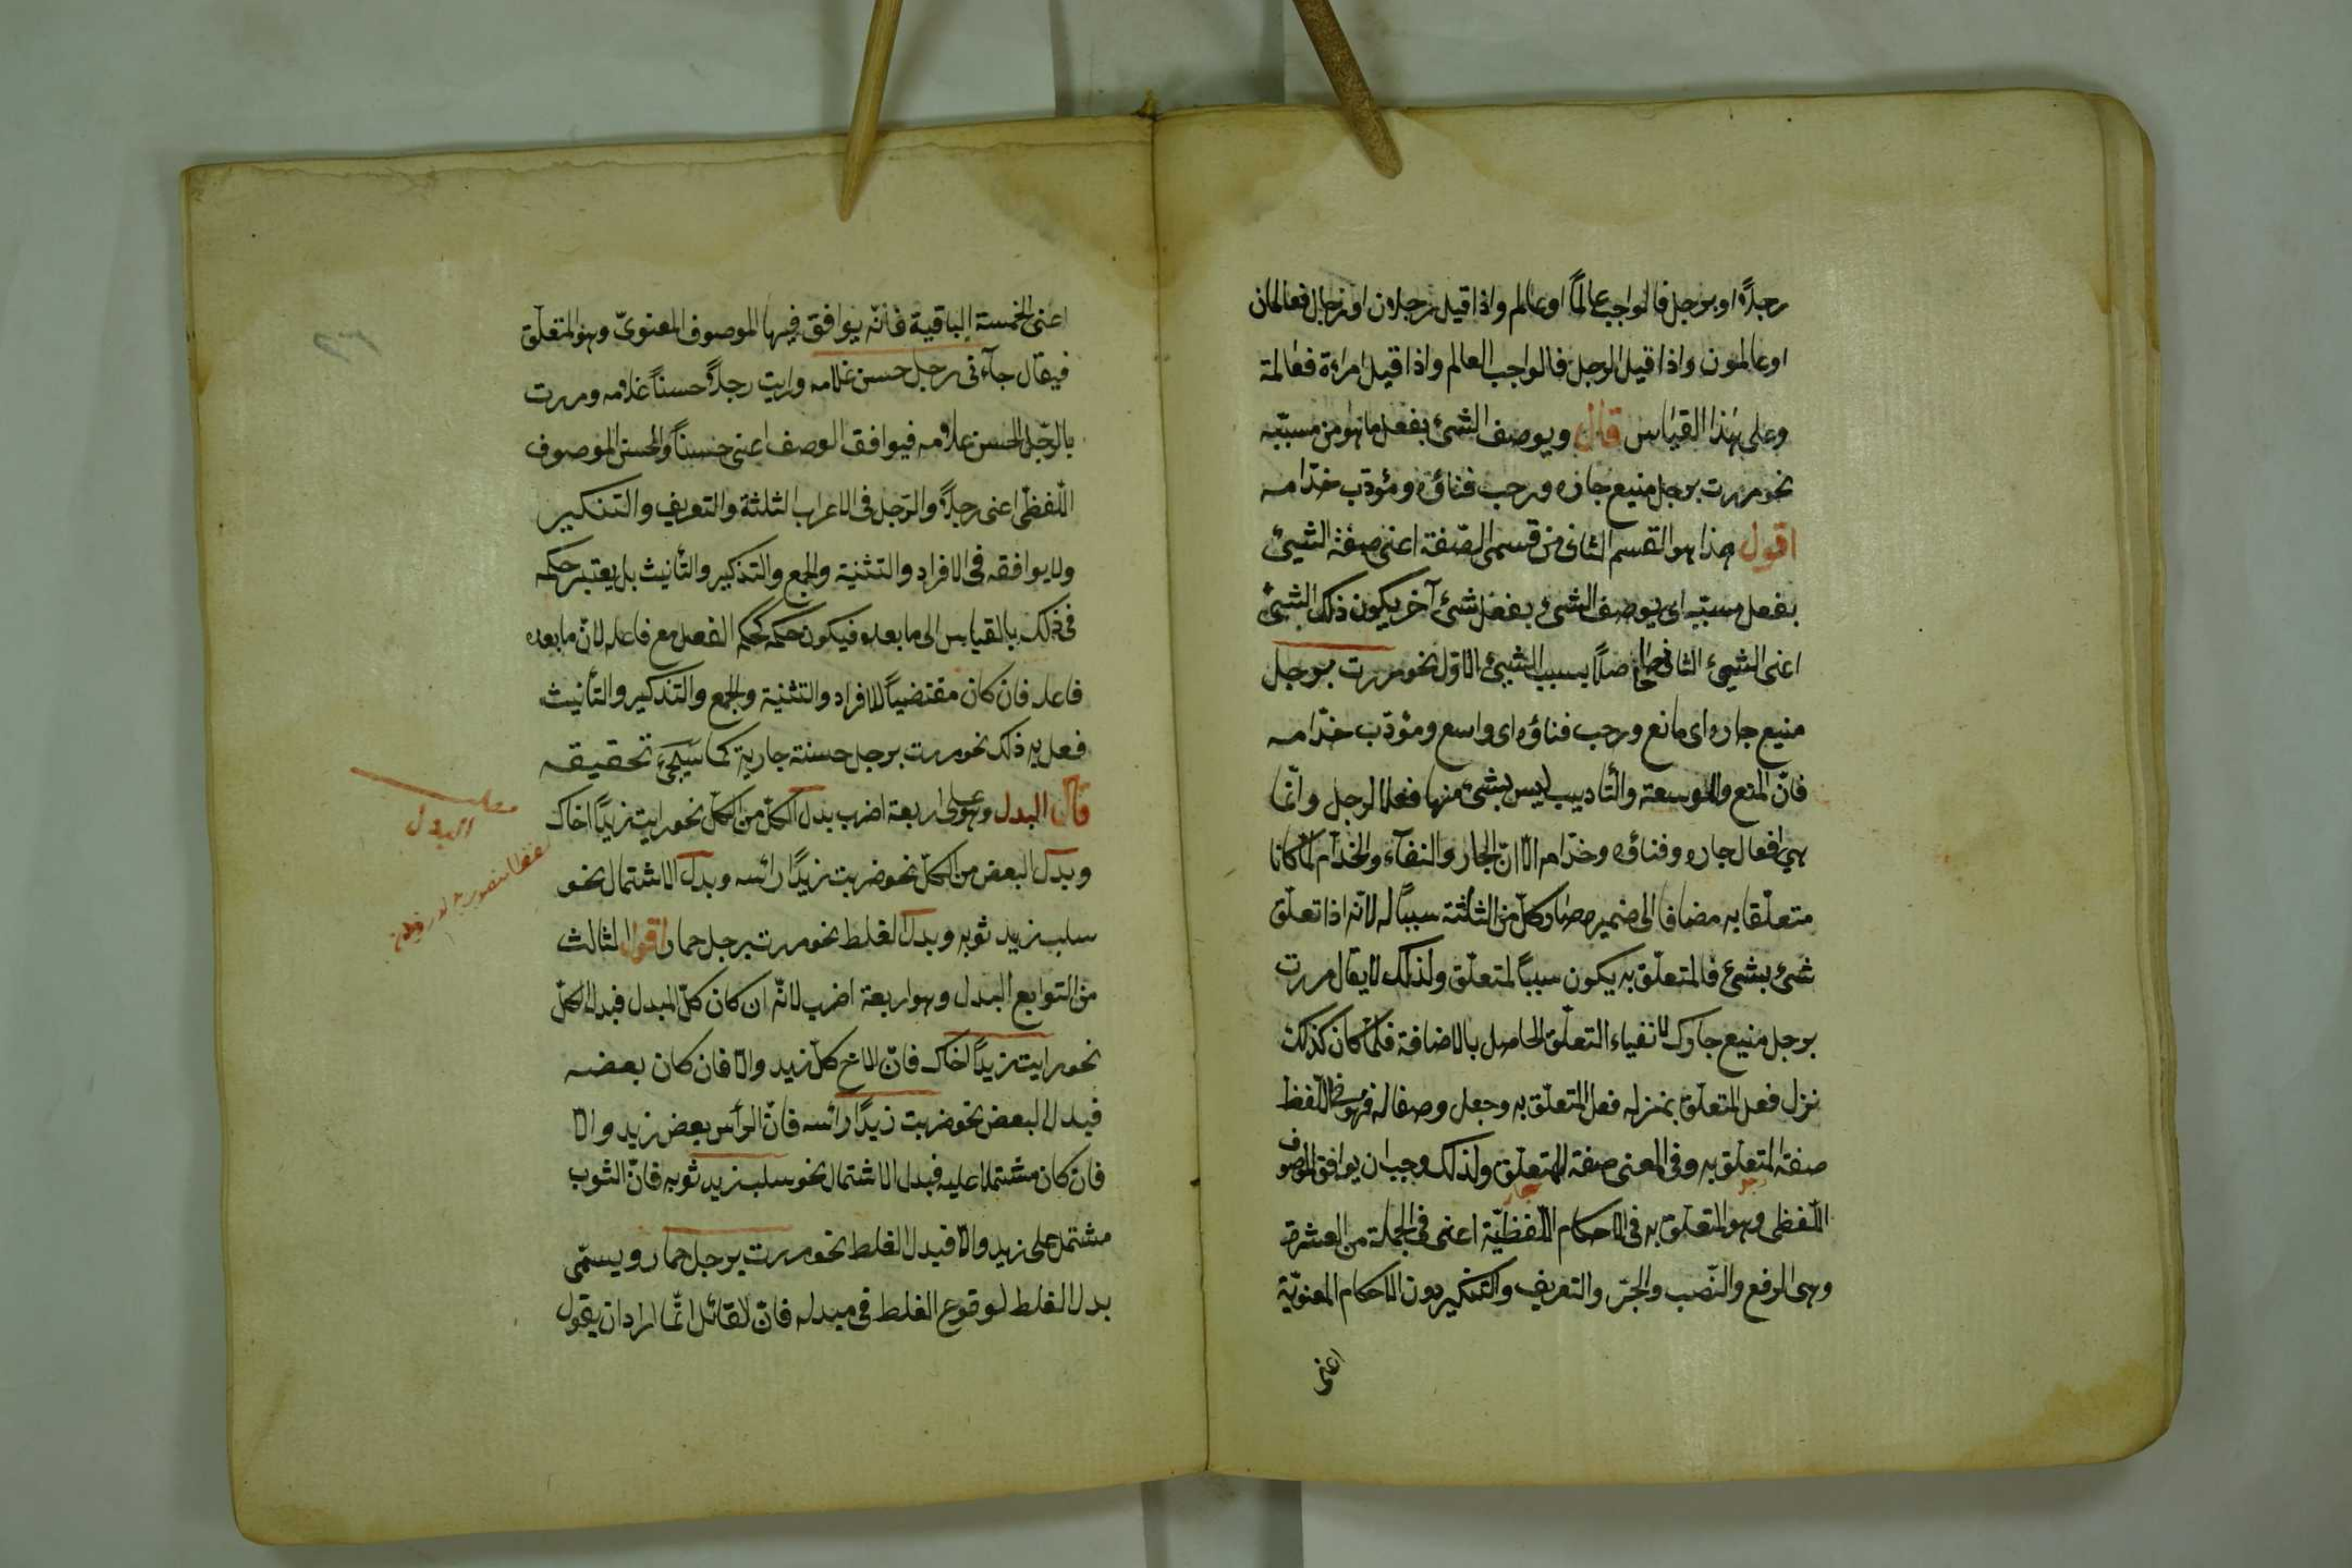 رجلاً او برجل فالواجب عالماً او عالم واذا قيل رجلان او رجال فعالمان
او عالمون واذا قيل الرجل فالواجب العالم واذا قيل امراءة فعالمة
وعلى هذا القياس قال ويوصف الشئ بفعل ما هو من مسببه
نحو مررت برجل منيع جاره ورحب فناؤه ومؤدب خدّامه
اقول هذا هو القسم الثانى من قسمى الصّفة اعنى صفة الشيئ
بفعل مسببه اى يوصف الشئ بفعل شئ آخر يكون ذلك الشيئ
اعنى الشيئ الثانى حاصلاً بسبب الشيئ الاول نحو مررت برجل
منيع جاره اى مانع ورحب فناؤه اى واسع ومؤدّب خدّامه
فانّ المنع والوسعة والتأديب ليس بشئ منها فعلا لرجل وانّما
هى افعال جاره وفناؤه وخدّامه الّا انّ الجار والفنآء والخدّام لمّا كانا
متعلّقا به مضافا الى ضميره صار كلّ من الثلثة سبباً له لانّه اذا تعلّق
شئ بشئ فالمتعلّق به يكون سبباً لمتعلّق ولذلك لا يقال مررت
برجل منيع جارك لانتفاء التعلّق الحاصل بالاضافة فلمّا كان كذلك
نزل فعل المتعلّق بمنزلة فعل المتعلّق به وجعل وصفا له فهو فى اللّفظ
صفة المتعلّق به وفى المعنى صفة المتعلّق ولذلك وجب ان يوافق الموصوف
اللّفظى وهو المتعلّق به فى الاحكام اللّفظيّة اعنى فى الجملة من العشرة
وهى الرفع والنّصب والجرّ والتعريف والتنكير دون الاحكام المعنويّة
اعنى
اعنى الخمسة الباقية فانّه يوافق فيها الموصوف المعنوىّ وهو المتعلّق
فيقال جآءنى رجل حسن غلامه ورايت رجلاً حسناً غلامه ومررت
بالرّجل الحسن غلامه فيوافق الوصف اعنى حسناً والحسن الموصوف
اللّفظى اعنى رجلاً والرّجل فى الاعراب الثلثة والتعريف والتنكير
ولا يوافقه فى الافراد والتثنية والجمع والتذكير والتأنيث بل يعتبر حكمه
فى ذلك بالقياس الى ما بعده فيكون حكمه كحكم الفعل مع فاعله لانّ ما بعده
فاعله فان كان مقتضياً للافراد والتثنية والجمع والتذكير والتأنيث
فعل به ذلك نحو مررت برجل حسنة جاريته كما سيجئ تحقيقه
قال البدل وهو على اربعة اضرب بدل الكلّ من الكلّ نحو رايت زيداً اخاك
وبدل البعض من الكلّ نحو ضربت زيداً رائسه وبدل الاشتمال نحو
سلب زيد ثوبه وبدل الغلط نحو مررت برجل حمار اقول الثالث
من التوابع البدل وهو اربعة اضرب لانّه ان كان كلّ المبدل فبدل الكلّ
نحو رايت زيداً اخاك فانّ الاخ كلّ زيد والّا فان كان بعضه
فبدل البعض نحو ضربت زيداً رائسه فانّ الرأس بعض زيد والّا
فان كان مشتملا عليه فبدل الاشتمال نحو سلب زيد ثوبه فانّ الثوب
مشتمل على زيد والّا فبدل الغلط نحو مررت برجل حمار ويسمّى
بدل الغلط لوقوع الغلط فى مبدله فانّ القائل انّما اراد ان يقول
مطلب
البدل